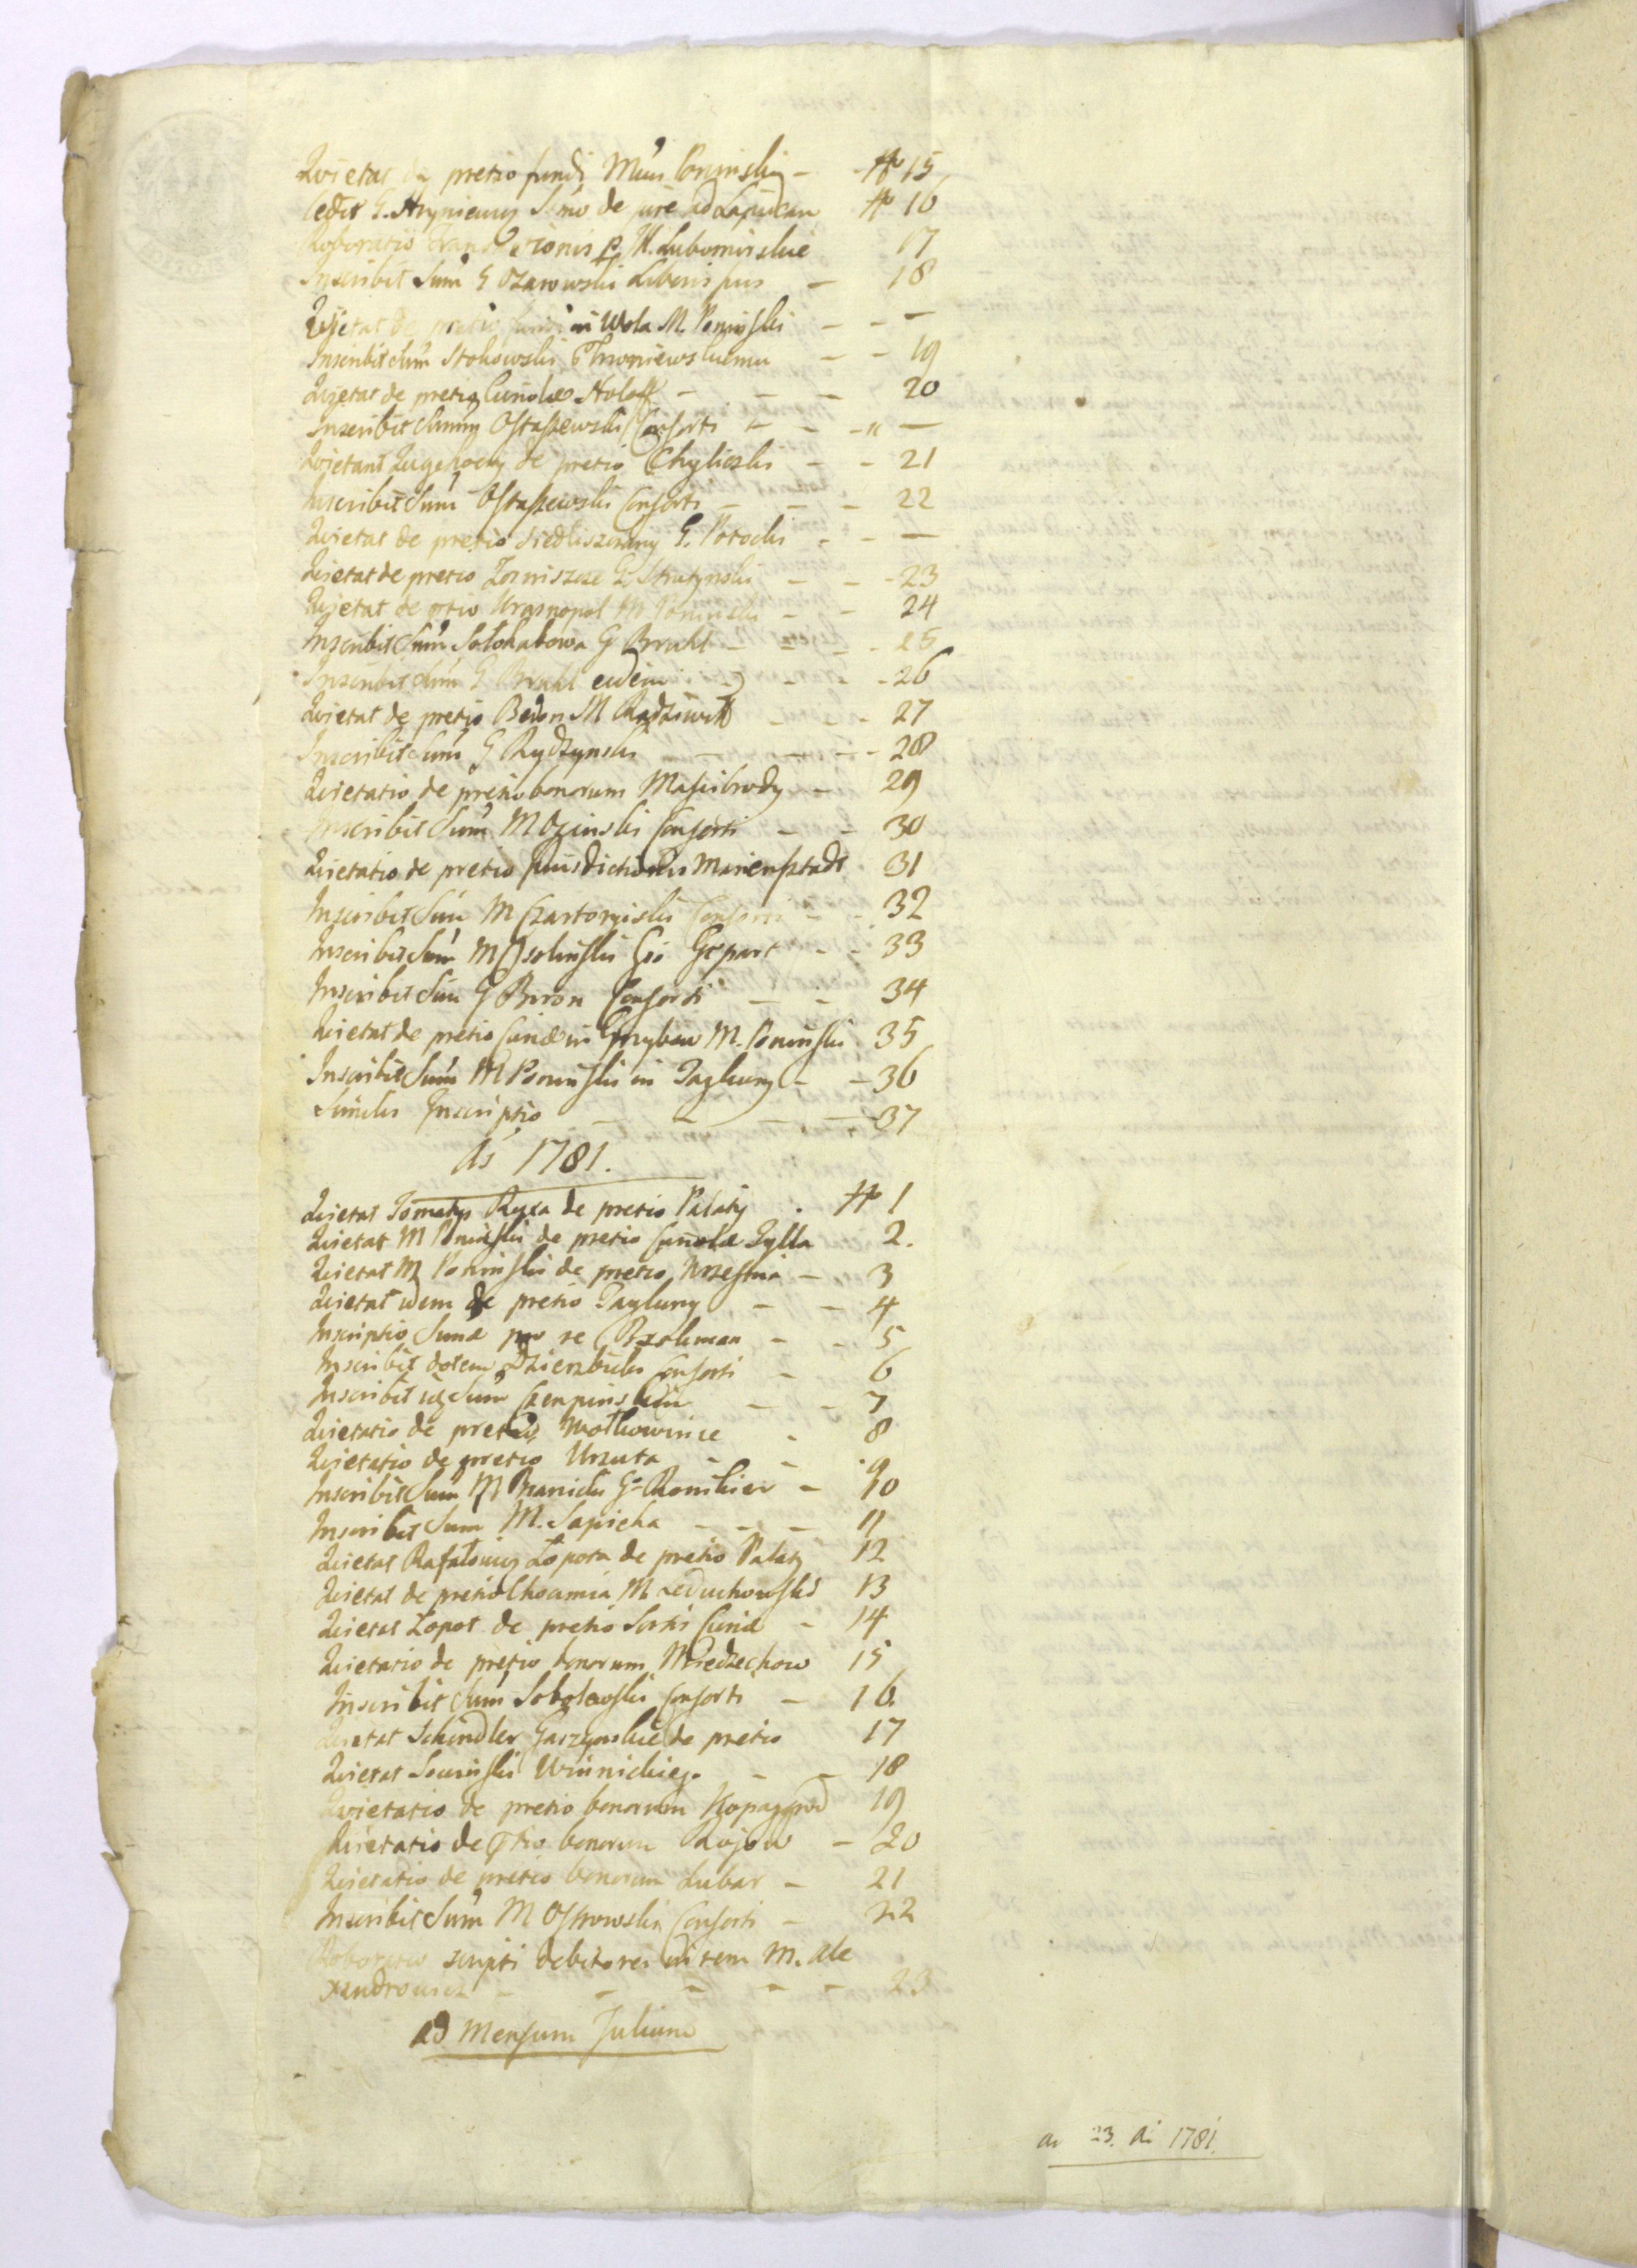 Quietat de pretio fundi M Poninski – № 15
Cedit G. Hryniewicz Smo de jure ad Lapidean № 16
Roboratio Transactionis p. M. Lubomirskie 17
Inscribit Sum G Ozarowski Liberis suis – 18
Quietat de pretio fundi in Wola M. Poninski – – –
Inscribit Sum Stokowski Thworniewskiemu – – 19
Quietat de pretio Curiolae Holoff – – – 20
Inscribit Sumy Ostaszewski Consorti – – – " –
Quietant de pretio Chylicski – – 21
Inscribit Sum Ostaszewski Consorti – – – 22
Quietat de pretio Siedliszczany G. Potocki – – –
Quietat de pretio Zorniszcze G. Strutynski – – – 23
Quietat de prtio Krasnopol M Poninski – – 24
Inscribit Sum Solohabowa G Bruhl – – – 25
Inscribit Sum G Bruhl eidem – – – 26
Quietat de pretio Bedon M Radziwill – – – 27
Inscribit Sum G Rydzynski – – – – 28
Quietatio de pretio bonorum Masiebrody – 29
Inscribit Sum M Oginski Consorti – – 30
Quietatio de pretio Jurisdictionis Marienstadt 31
Inscribit Sum M Czartoryiski Consorti – – 32
Inscribit Sum M Ossolinski Gepart – – 33
Inscribit Sum G Biron Consorti – – 34
Quietat de pretio Curiae in Grzybow M. Poninski 35
Inscribit Sum M Poninski in Taykury – – 36
Similis Inscriptio – – – – 37
As 1781.
Quietat Tomatys Ryxa de pretio Palatij . № 1
Quietat M Poninski de pretio Curiolae Tylla 2.
Quietat M Poninski de pretio Wrzesnia – 3
Quietat idem de pretio Taykury – – 4
Inscriptio Sumae pro re Brohman – – 5
Inscribit dotem Dzierzbicki Consorti – 6
Inscribit Sum Czenpinskim – – 7
Quietatio de pretio Wotkowince – 8
Quietatio de pretio Urzuta – – . 9
Inscribit Sum M Branicki G Ronikier – 10
Inscribit Sum M. Sapieha – – – 11
Quietat Rafalowicz Lopota de pretio Palaty 12
Quietat de pretio Choamia M Leduchowski 13
Quietat Lopot de pretio Sortis Curiae – 14
Quietatio de pretio bonorum Miedzechow 15
Inscribit Sum Sobolewski Consorti – 16.
Quietat Schindler Garzynskie de pretio 17
Quietat Sowinski Winnickiego – – 18
Quietatio de pretio bonorum Kopaygrod 19
Quietatio de prtio bonorum Kojow – 20
Quietatio de pretio bonorum Lubar – 21
Inscribit Sum M Ostrowski Consorti – 22
Roboratio scripti debitores M. Ale
xandrowicz – – – – – 23
ad Mensum Julium
23. 1781.